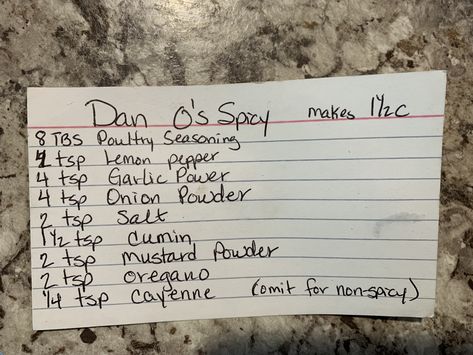 Dan O's Spicy makes 1½ C
8 TBS Poultry Seasoning
tsp Lemon pepper
4 tsp Garlic Power
4 tsp Onion Powder
2 tsp Salt
1½ tsp Cumin
2 tsp Mustard Powder
2 tsp oregano
¼ tsp Cayenne (omit for non-spicy)